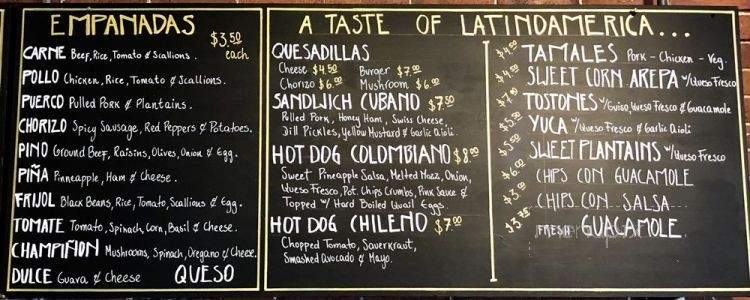 EMPANADAS
$3.50 each
CARNE Beef, Rice, Tomato & Scallions.
POLLO Chicken, Rice, Tomato & Scallions.
PUERCO Pulled Pork & Plantains.
CHORIZO Spicy Sausage, Red Peppers & Potatoes.
PINO Ground Beef, Raisins, Olives, Onion & Egg.
PIÑA Pinneapple, Ham & Cheese.
FRIJOL Black Beans, Rice, Tomato, Scallions & Egg.
TOMATE Tomato, Spinach, Corn, Basil & Cheese.
CHAMPIÑON Mushrooms, Spinach, Oregano & Cheese.
DULCE Guava & Cheese QUESO
A TASTE OF LATINOAMERICA...
QUESADILLAS
Cheese $4.50 Burger $7.00
Chorizo $6.00 Mushroom $6.00
SANDWICH CUBANO $7.50
Pulled Pork, Honey Ham, Swiss Cheese,
Dill Pickles, Yellow Mustard & Garlic Aioli.
HOT DOG COLOMBIANO $8.00
Sweet Pineapple Salsa, Melted Mozz, Onion,
Queso Fresco, Pot. Chips Crumbs, Pink Sauce &
Topped w/ Hard Boiled Quail Eggs.
HOT DOG CHILENO $7.00
Chopped Tomato, Sauerkraut,
Smashed Avocado & Mayo.
$4.50 TAMALES Pork - Chicken - Veg.
$4.50 SWEET CORN AREPA w/Queso Fresco
TOSTONES w/Guiso, Queso Fresco & Guacamole
YUCA w/Queso Fresco & Garlic Aioli
SWEET PLANTAINS w/Queso Fresco
CHIPS CON GUACAMOLE
CHIPS CON SALSA
FRESH GUACAMOLE